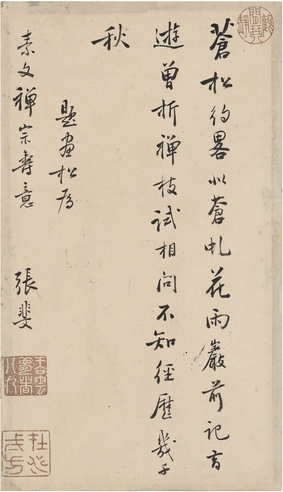 蒼松約畧似蒼虬花雨巖前記昔
遊曾折禪枝試相問不知經歷幾千
秋
題畫松為
素文禪宗壽意
張斐